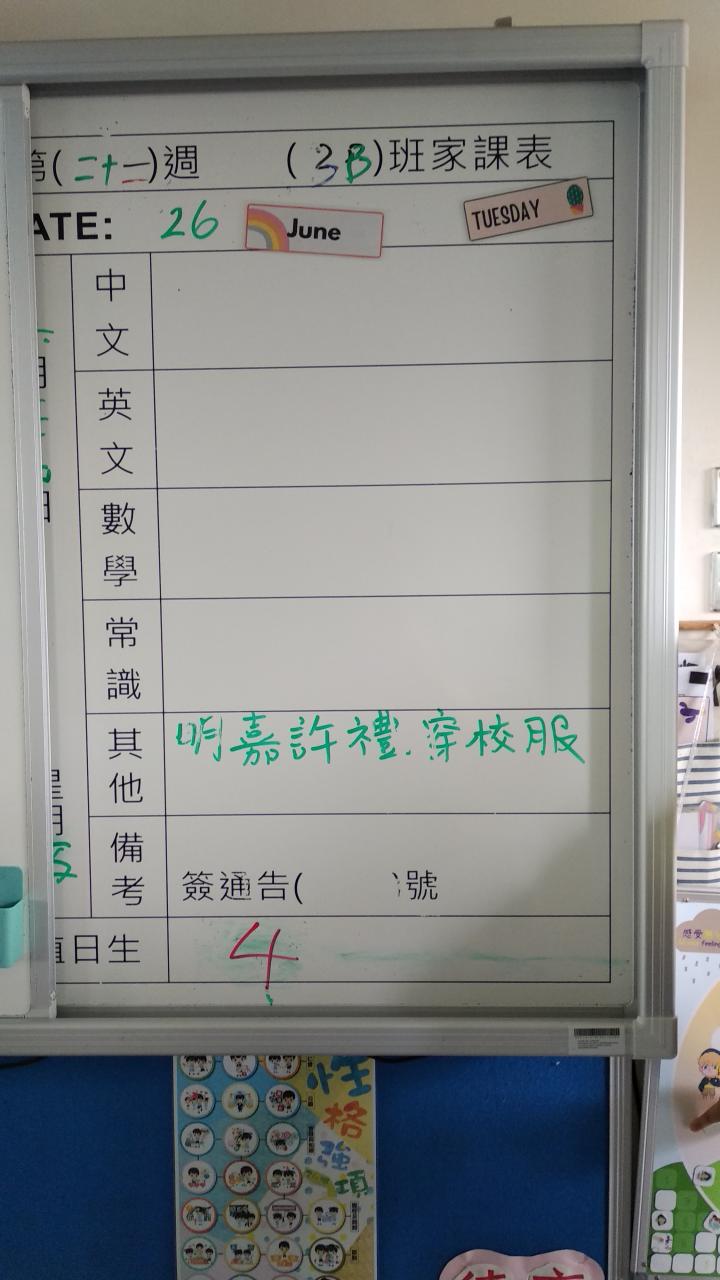 第(二十一)週 (3B)班家課表
DATE: 26 June TUESDAY
中文
英文
數學
常識
其他 明嘉許禮.穿校服
備考 簽通告( )號
值日生 4
性格強項
感受